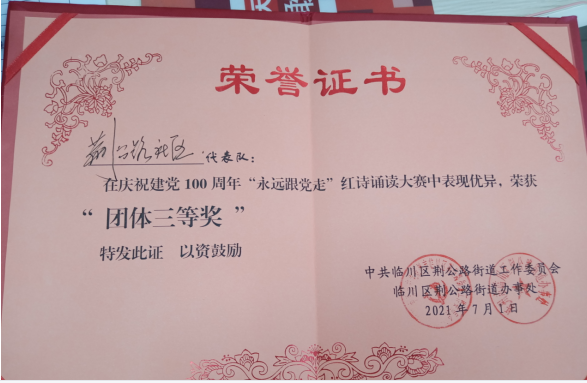 荣誉证书
荆公路社区 代表队：
在庆祝建党 100 周年“永远跟党走”红诗诵读大赛中表现优异，荣获
“ 团体三等奖 ”
特发此证 以资鼓励
中共临川区荆公路街道工作委员会
临川区荆公路街道办事处
2021 年 7 月 1 日